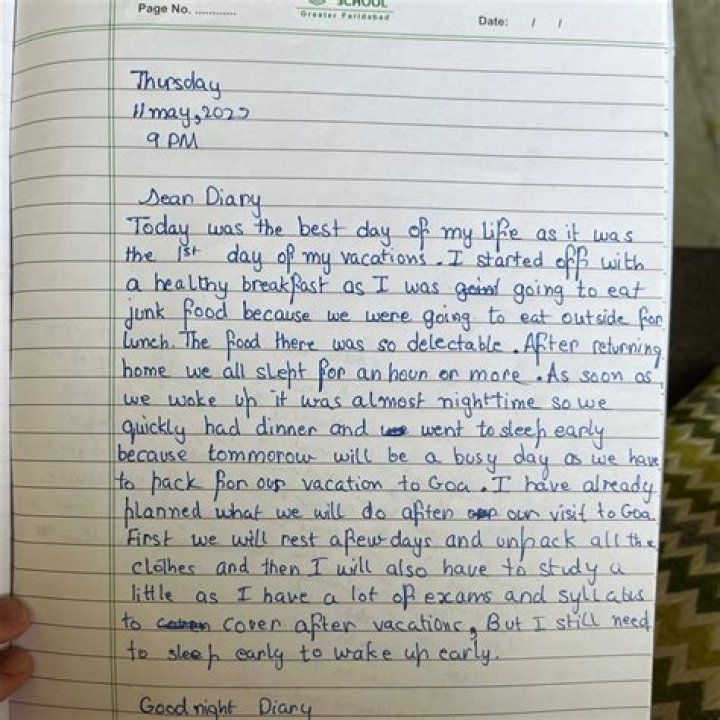 Page No. ............
SCHOOL
Greater Faridabad
Date: / /
Thursday
11 may, 2022
9 PM
Dear Diary
Today was the best day of my life as it was
the 1st day of my vacations. I started off with
a healthy breakfast as I was going to eat
junk food because we were going to eat outside for
lunch. The food there was so delectable. After returning
home we all slept for an hour or more. As soon as
we woke up it was almost nighttime so we
quickly had dinner and went to sleep early
because tommorow will be a busy day as we have
to pack for our vacation to Goa. I have already
planned what we will do after our visit to Goa
First we will rest a few days and unpack all the
clothes and then I will also have to study a
little as I have a lot of exams and syllabus
to cover after vacations, But I still need
to sleep early to wake up early.
Good night Diary